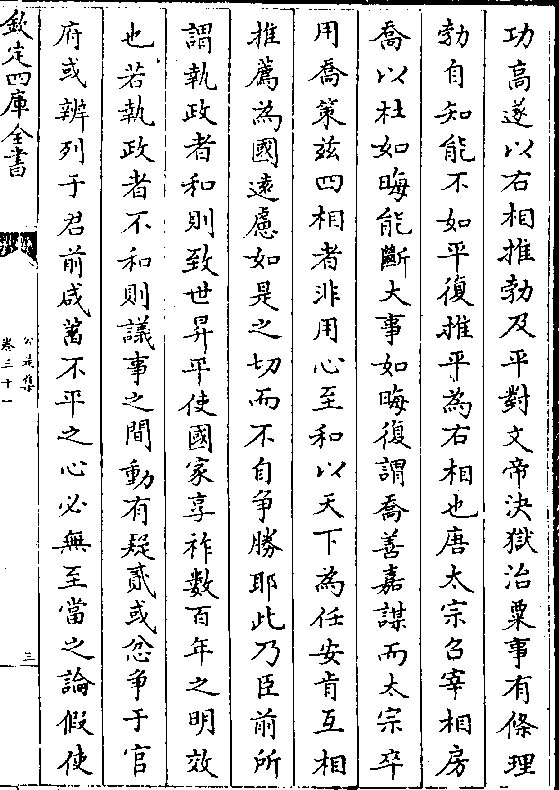 功高遂以右相推勃及平對文帝決獄治粟事有條理
勃自知能不如平復推平為右相也唐太宗召宰相房
喬以杜如晦能斷大事如晦復謂喬善嘉謀而太宗卒
用喬策兹四相者非用心至和以天下為任安肯互相
推薦為國逺慮如是之切而不自争勝耶此乃臣前所
謂執政者和則致世昇平使國家享祚數百年之明效
也若執政者不和則議事之間動有疑貳或忿争于官
府或辨列于君前咸蓄不平之心必無至當之論假使
欽定四庫全書
卷三十一
三